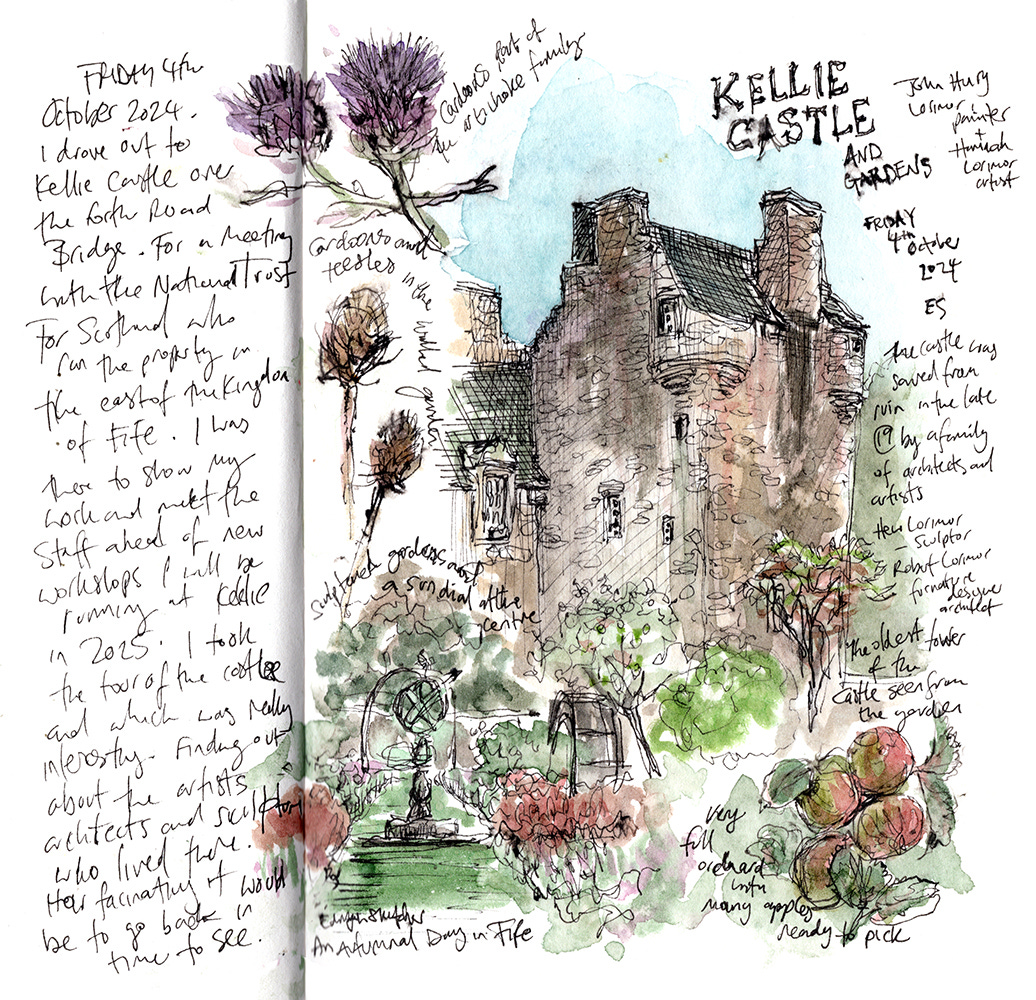 FRIDAY 4th
October 2024.
I drove out to
Kellie Castle over
the forth Road
Bridge. For a meeting
with the National Trust
For Scotland who
run the property in
the east of the Kingdom
of Fife. I was
there to show my
work and meet the
Staff ahead of new
workshops I will be
running at Kellie
in 2025. I took
the tour of the castle
and which was really
interesting. Finding out
about the artists
architects and sculptors
who lived there.
How facinating it would
be to go back in
time to see.
Cardoons part of
the artichoke family
Cardoons and
teesles in the walled garden
KELLIE
CASTLE
AND
GARDENS
FRIDAY
4th
October
2024
ES
John Henry
Lorimor
painter
+
Hannah
Lorimor
artist
The castle was
saved from
ruin in the late
19 by a family
of architects and
artists
Hew Lorimor
Sculptor
Robert Lorimor
furniture
designer
architect
The oldest tower
of the
Castle seen from
the garden
Sculptured gardens and
a sundial at the
centre
Very
full
orchard
with
many apples
ready to pick
An Autumnal Day in Fife